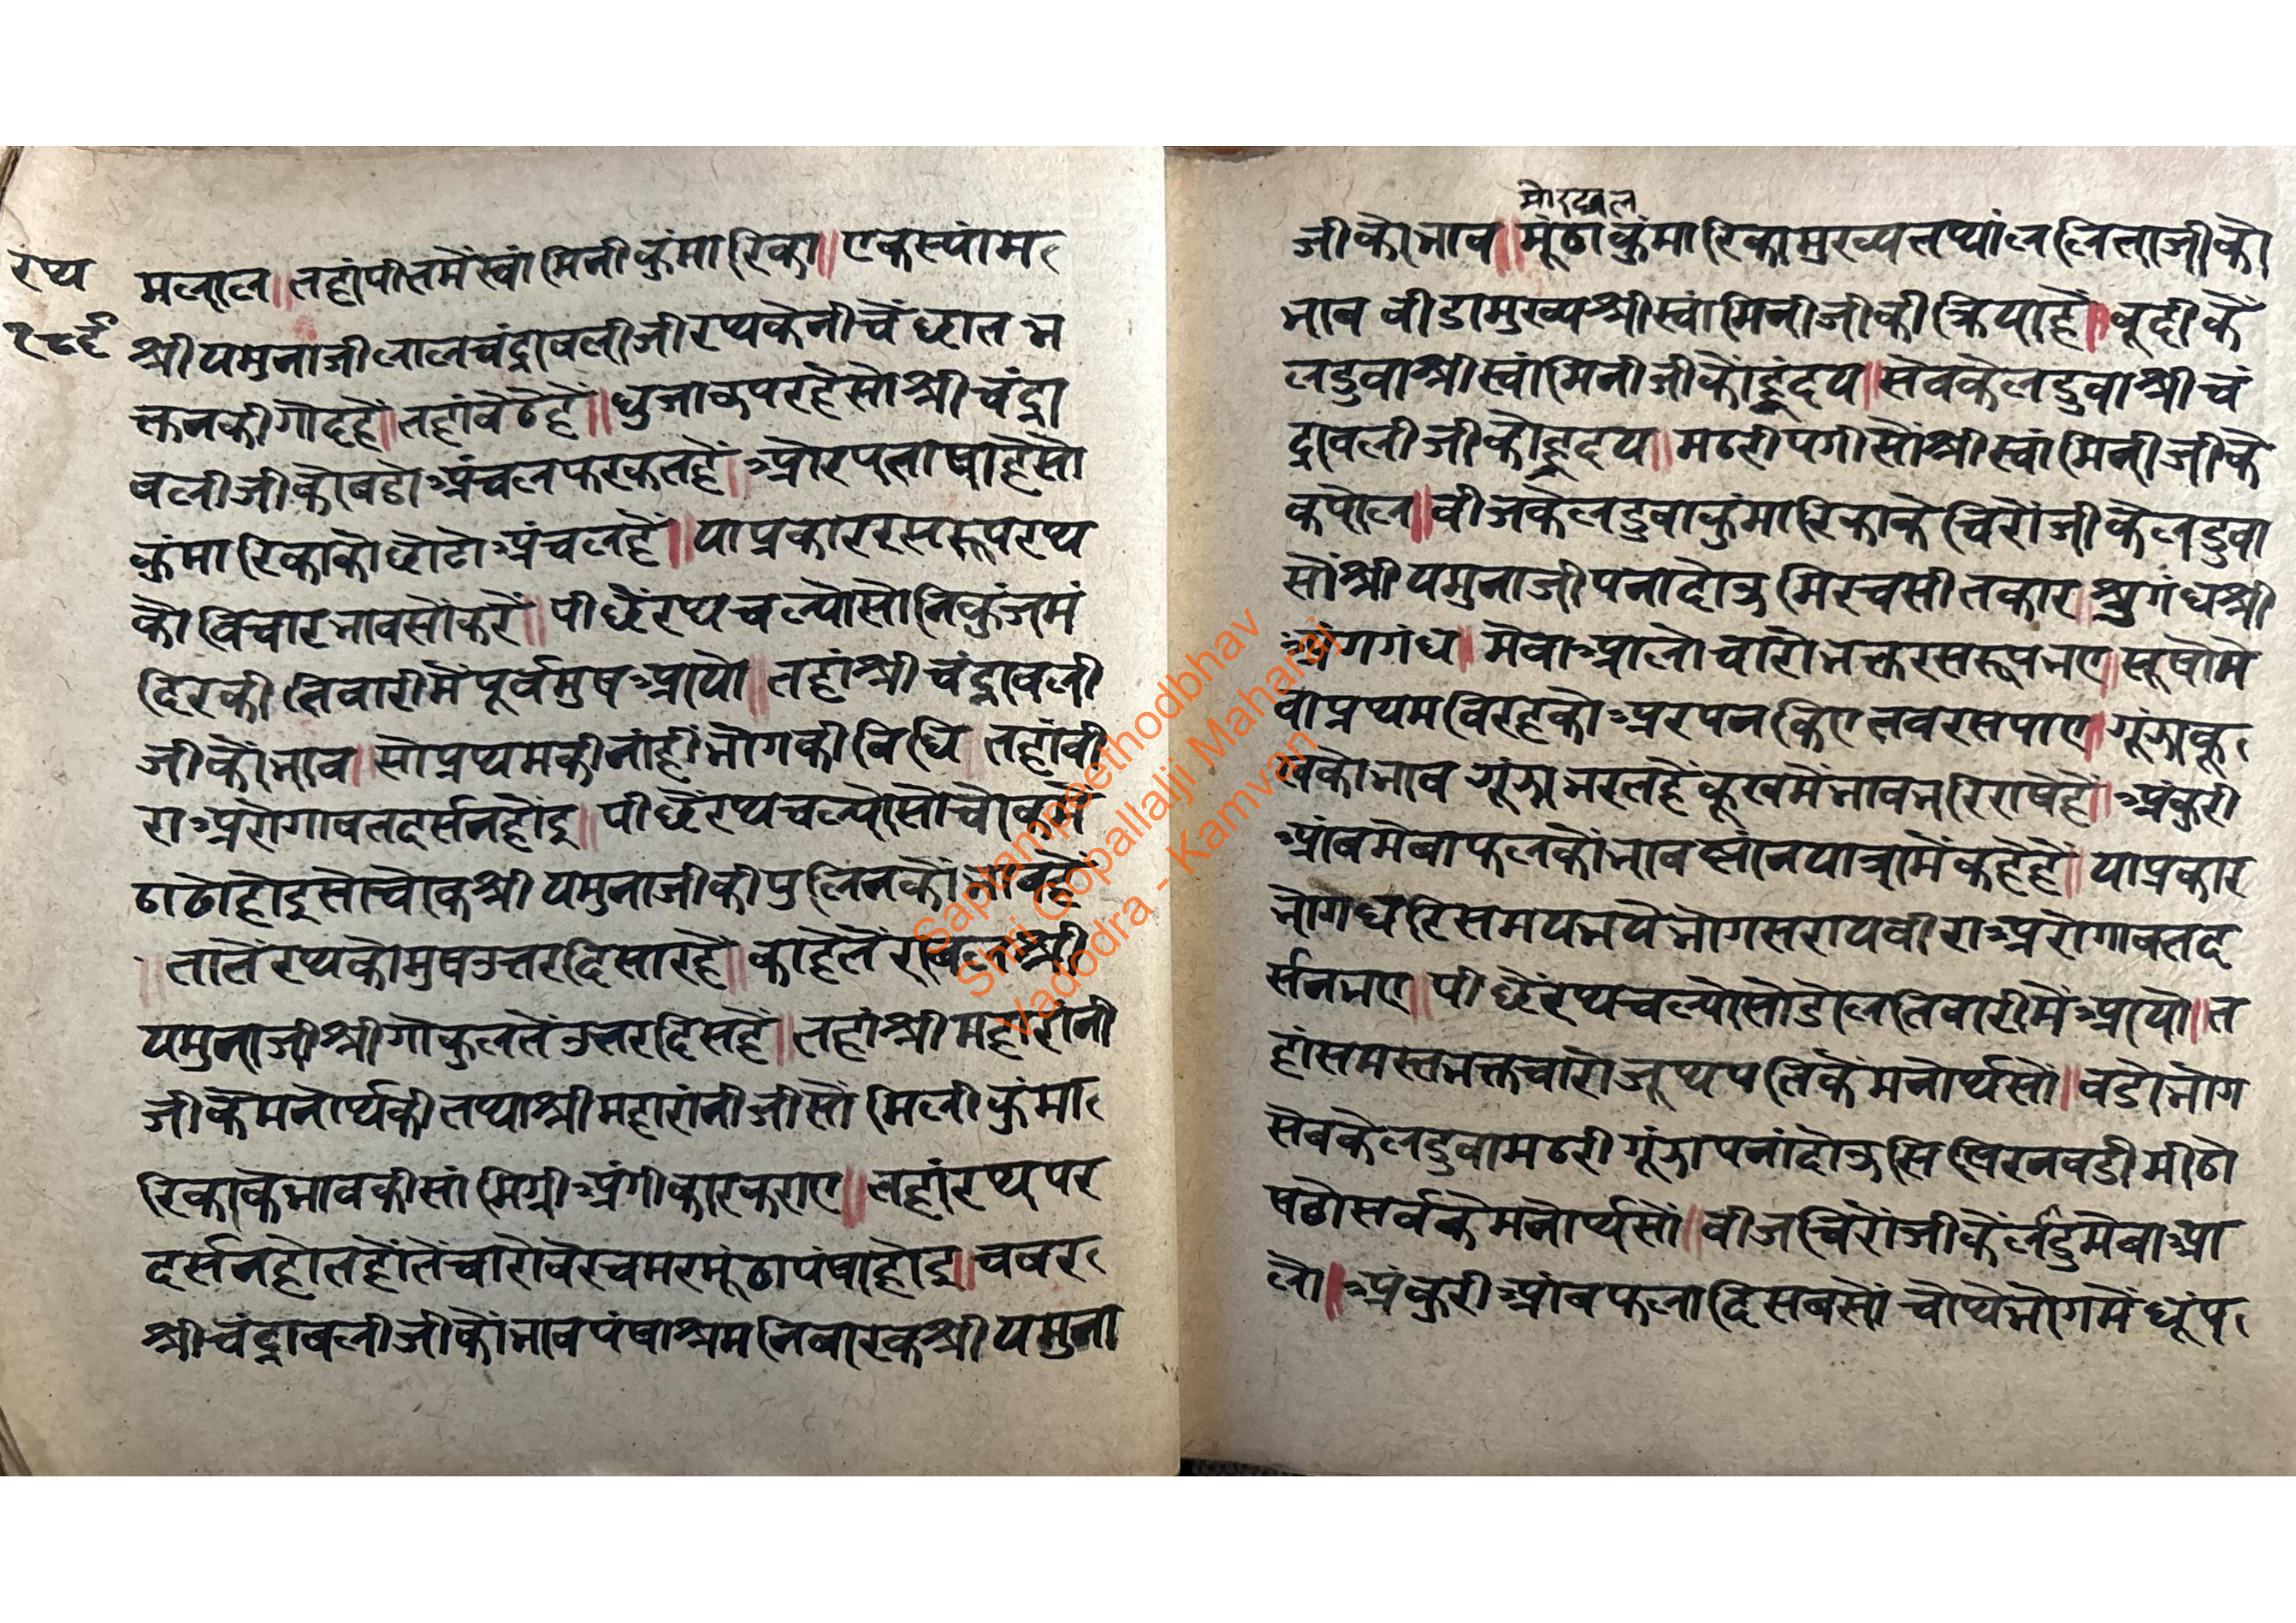 रथ
१८६
मलाल॥ तहां पीतमैं स्वांमिनी कुंमारिका॥ एक स्यांम
श्रीयमुनाजी लाल चंद्रावलीजी रथ के नीचैं छात भ
क्तन की गोद है॥ तहां बैठे हैं॥ धुजा ऊपर है सो श्रीचंद्रा
वलीजी को बडो अंचल फरकत है॥ और पताषा है सो
कुंमारिका को छोटो अंचल है॥ या प्रकार रस रूप रथ
को विचार भाव सों करैं॥ पीछैं रथ चल्यो सो निकुंज मं
दिर की तिवारी मैं पूर्व मुष आयो॥ तहां श्रीचंद्रावली
जी कौ भाव॥ सो प्रथम की नांही भोग की विधि॥ तहां बी
रा अरोगावत दर्सन होंइ॥ पीछैं रथ चल्यो सो चौक मैं
ठाढो होइ सो चौक श्रीयमुनाजी की पुलिन कौ भाव है
॥ तातें रथ को मुष उत्तर दिसा रहै॥ काहे तें श्री
यमुनाजी श्रीगोकुल तें उत्तर दिस है॥ तहां श्रीमहारांनी
जी के मनोर्थ की तथा श्रीमहारांनीजी सों मिली कुंमा
रिका के भाव की सांमिग्री अंगीकार कराए॥ तहां रथ पर
दर्सन होत हैं तें चारो वेर चमर मूंठा पंषा होइ॥ चवर
श्रीचंद्रावलीजी कौ भाव पंषा श्रम निवारक श्रीयमुना
मोरछल
जी को भाव॥ मूंठा कुंमारिका मुख्य तथां ललिताजी को
भाव बीडा मुख्य श्रीस्वांमिनीजी की क्रिया है॥ बूदी के
लडुवा श्रीस्वांमिनीजी कौ हृंदय॥ सेव के लडुवा श्रीचं
द्रावलीजी कौ हृदय॥ मठरी पगी सों श्रीस्वांमिनीजी के
कपोल॥ बीज के लडुवा कुंमारिका के चिरोंजी के लडुवा
सों श्रीयमुनाजी पना दोऊ मिरच सीतकार॥ श्रुगंध श्री
अंग गंध॥ मेवा आलो चारो भक्त रस रूप भए॥ सूषो मे
वा प्रथम विरह को अरपन किए तव रस पाए॥ गूंझा कू
ख को भाव गूंझा भरत हैं कूख मैं भाव भरि राषे हैं॥ अंकुरी
आंब मेवा फल कौ भाव स्नांन यात्रा मैं कहे हैं॥ या प्रकार
भोग धरि समय भये भोग सराय बीरा अरोगावत द
र्सन भए॥ पीछैं रथ चल्यो सो डोल तिवारी मैं आयो॥ त
हां समस्त भक्त चारो जूथपति के मनोर्थ सों॥ बडो भोग
सेव के लडुवा मठरी गूंझा पनां दोऊ सिखिरन वडी मीठो
षठो सर्व के मनोर्थ सों॥ बीज चिरोंजी के लडु मेवा आ
लो॥ अंकुरी आंब फलादि सब सों चोथे भोग मैं धूंप